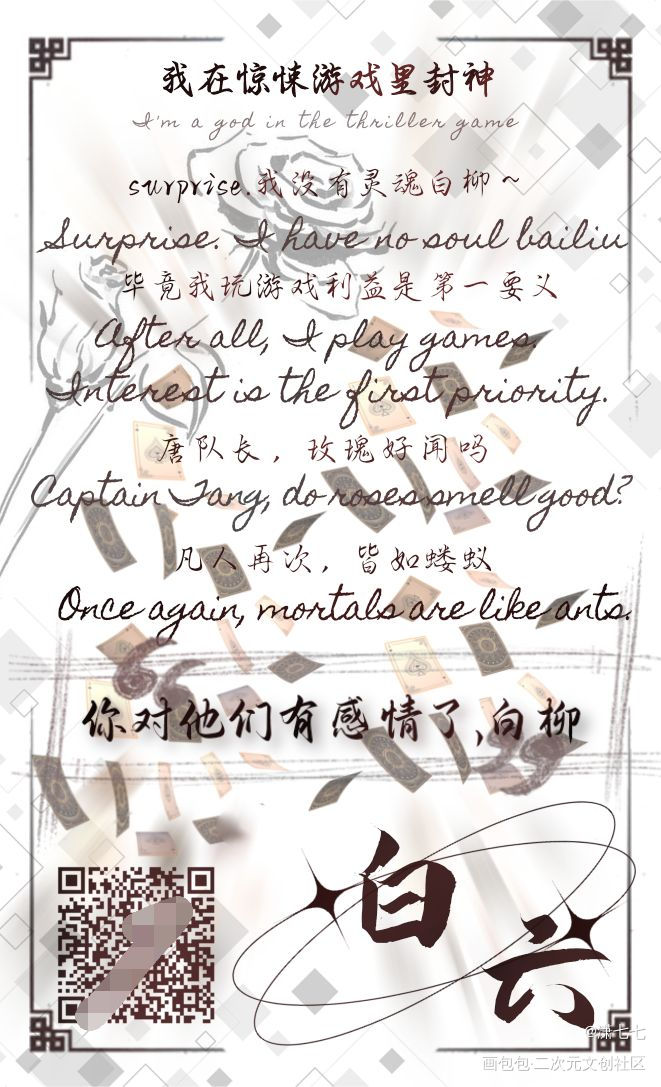 我在惊悚游戏里封神
I'm a god in the thriller game
surprise.我没有灵魂白柳~
Surprise. I have no soul bailiu
毕竟我玩游戏利益是第一要义
After all, I play games.
Interest is the first priority.
唐队长，玫瑰好闻吗
Captain Tang, do roses smell good?
凡人再次，皆如蝼蚁
Once again, mortals are like ants.
你对他们有感情了,白柳
白云
@潇七七
画包包·二次元文创社区